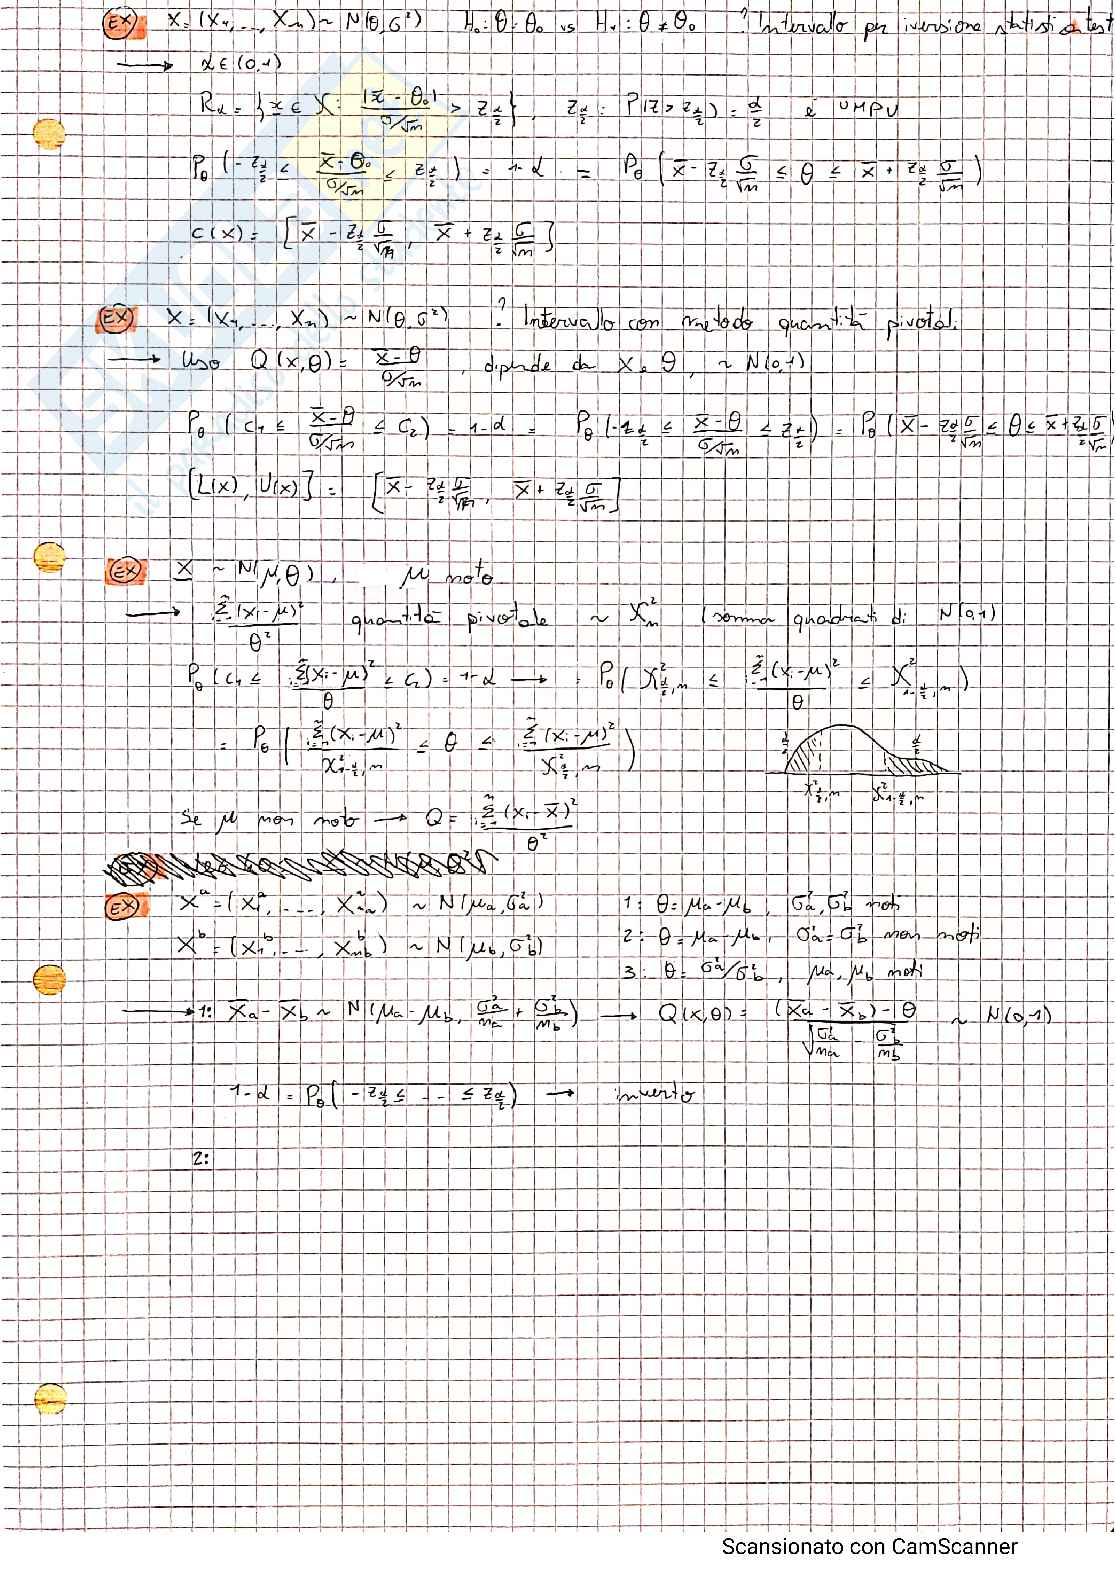 EX X = (X₁, ..., Xₙ) ~ N(θ, σ²) H₀: θ = θ₀ vs H₁: θ ≠ θ₀ ? Intervallo per inversione statistica test
→ α ∈ (0,1)
R_α = { x ∈ X : |x̄ - θ₀| / (σ/√n) > z_{α/2} }, z_{α/2} : P(Z > z_{α/2}) = α/2 è UMPU
P_θ ( -z_{α/2} ≤ (x̄ - θ₀)/(σ/√n) ≤ z_{α/2} ) = 1-α = P_θ ( x̄ - z_{α/2} σ/√n ≤ θ ≤ x̄ + z_{α/2} σ/√n )
C(x) = [ x̄ - z_{α/2} σ/√n, x̄ + z_{α/2} σ/√n ]
EX X = (X₁, ..., Xₙ) ~ N(θ, σ²) ? Intervallo con metodo quantità pivotal.
→ Uso Q(x,θ) = (x̄ - θ)/(σ/√n), dipende da X e θ, ~ N(0,1)
P_θ ( c₁ ≤ (x̄ - θ)/(σ/√n) ≤ c₂ ) = 1-α = P_θ ( -z_{α/2} ≤ (x̄ - θ)/(σ/√n) ≤ z_{α/2} ) = P_θ ( x̄ - z_{α/2} σ/√n ≤ θ ≤ x̄ + z_{α/2} σ/√n )
[L(x), U(x)] = [ x̄ - z_{α/2} σ/√n, x̄ + z_{α/2} σ/√n ]
EX X ~ N(μ, θ), μ noto
→ Σ(xᵢ - μ)²/θ² quantità pivotale ~ χ²ₙ (somma quadrati di N(0,1)
P_θ ( c₁ ≤ Σ(xᵢ - μ)²/θ ≤ c₂ ) = 1-α → = P_θ ( χ²_{α/2,n} ≤ Σ(xᵢ - μ)²/θ ≤ χ²_{1-α/2,n} )
= P_θ ( Σ(xᵢ - μ)²/χ²_{1-α/2,n} ≤ θ ≤ Σ(xᵢ - μ)²/χ²_{α/2,n} )
α/2 α/2
χ²_{α/2,n} χ²_{1-α/2,n}
Se μ non noto → Q = Σ(xᵢ - x̄)²/θ²
EX Xᵃ = (X₁ᵃ, ..., Xᵃ_{na}) ~ N(μa, σ²a) 1: θ = μa - μb, σ²a, σ²b noti
Xᵇ = (X₁ᵇ, ..., Xᵇ_{nb}) ~ N(μb, σ²b) 2: θ = μa - μb, σ²a = σ²b non noti
3: θ = σ²a/σ²b, μa, μb noti
→ 1: X̄a - X̄b ~ N(μa - μb, σ²a/na + σ²b/nb) → Q(x,θ) = ((X̄a - X̄b) - θ)/√(σ²a/na - σ²b/nb) ~ N(0,1)
1-α = P_θ ( -z_{α/2} ≤ ... ≤ z_{α/2} ) → inverto
2:
Scansionato con CamScanner